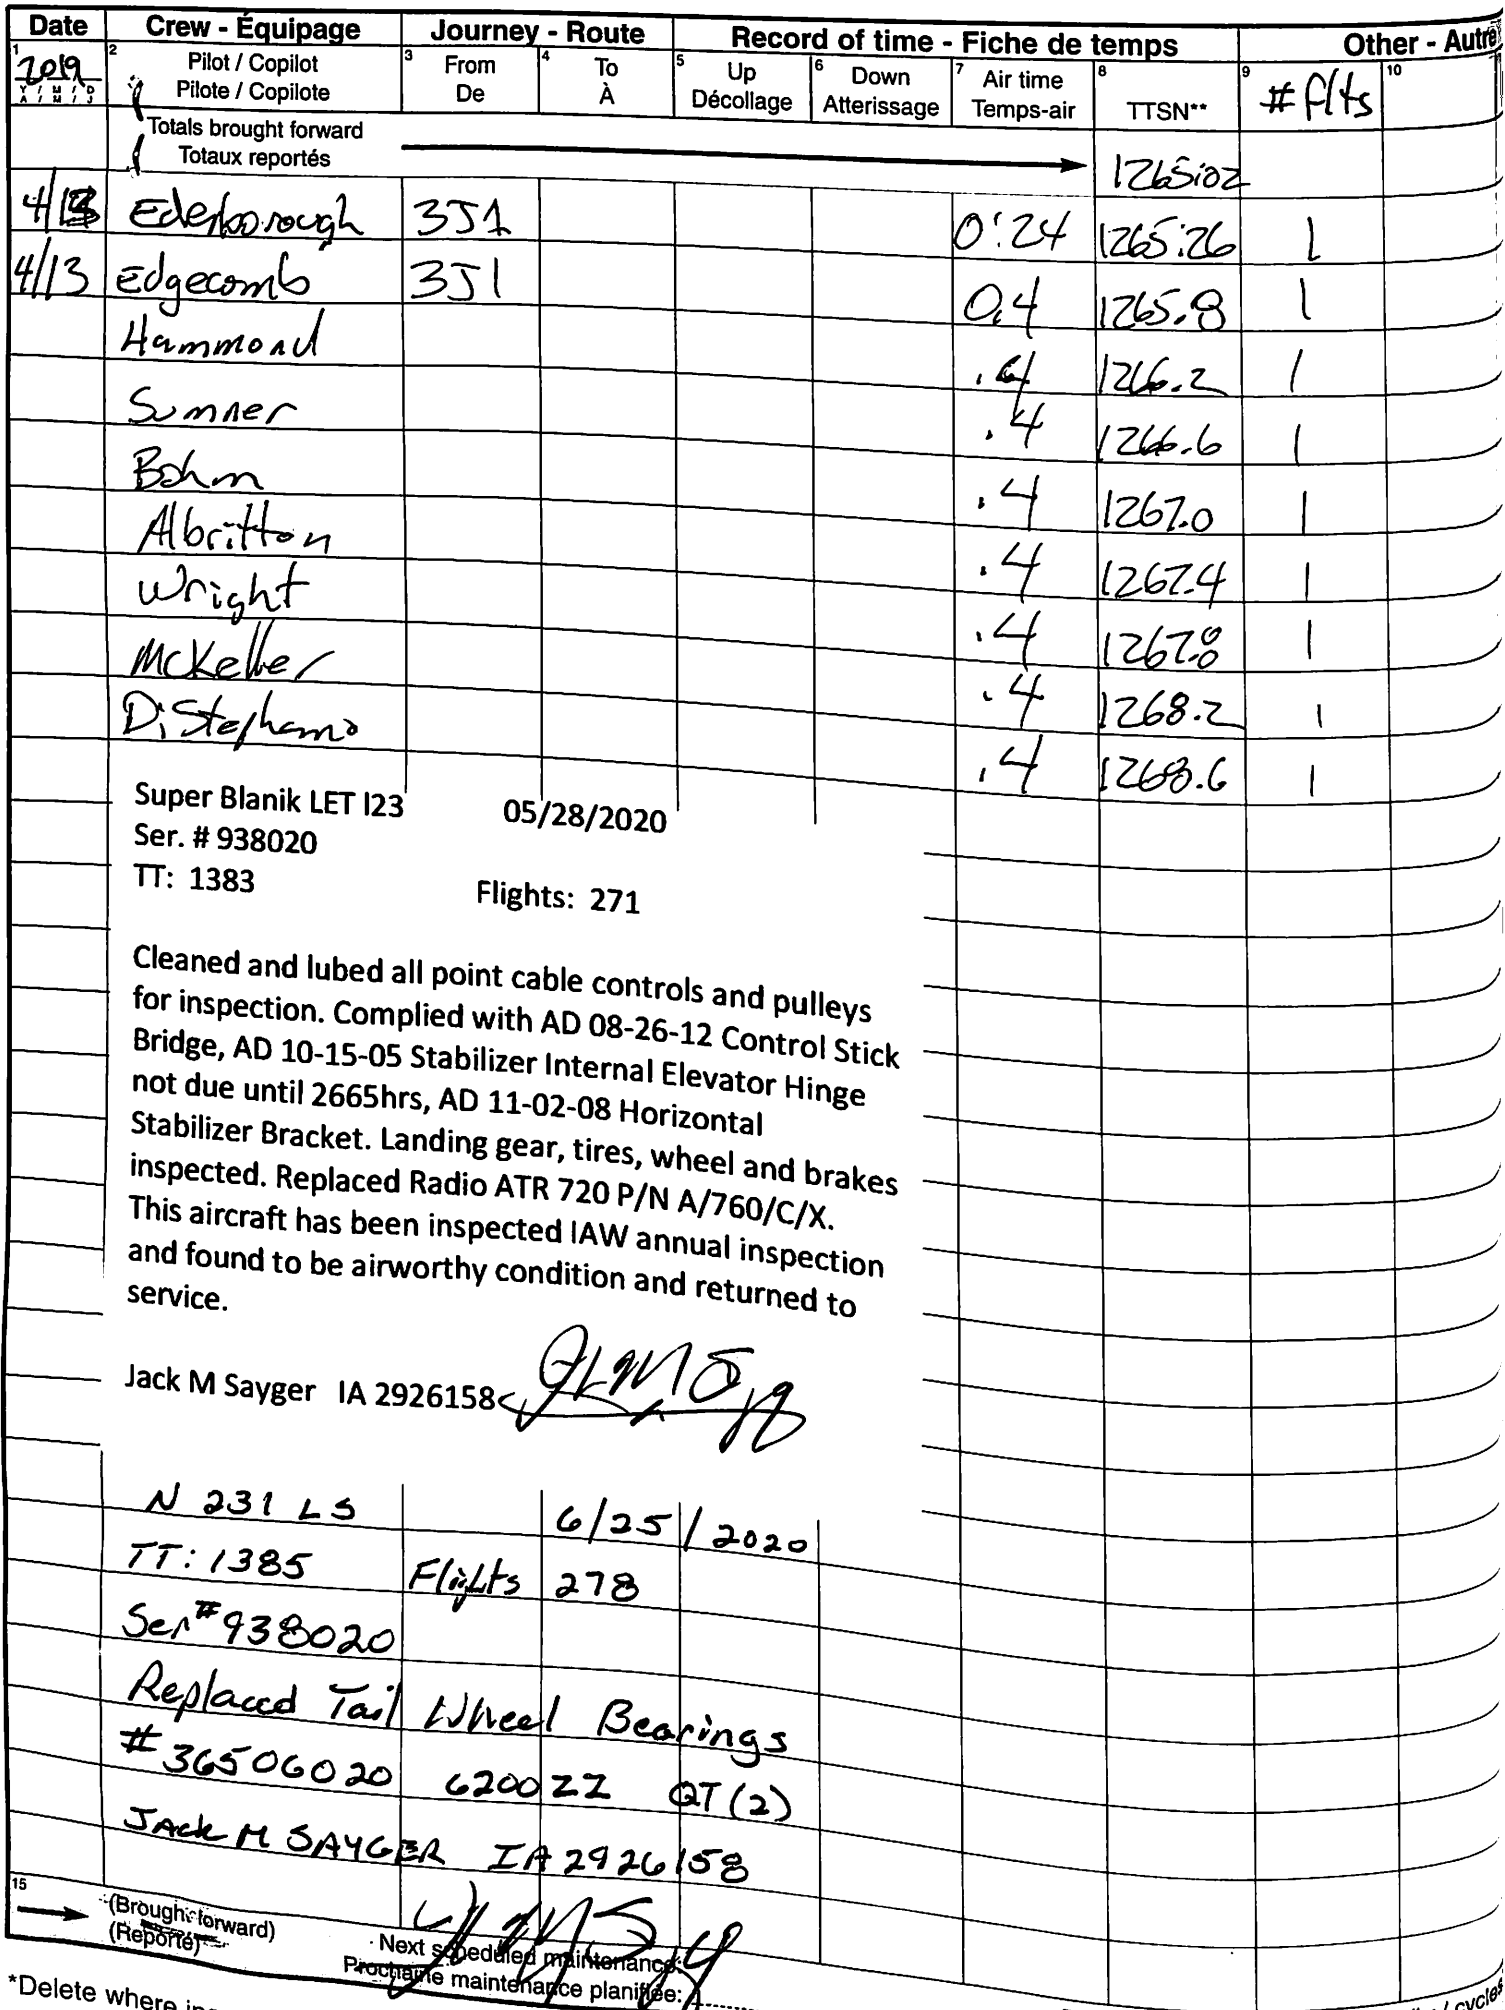 Date Crew - Équipage Journey - Route Record of time - Fiche de temps Other - Autre
1 2019 2 Pilot / Copilot 3 From 4 To 5 Up 6 Down 7 Air time 8 TTSN** 9 # flts 10
Y / M / D Pilote / Copilote De À Décollage Atterissage Temps-air
A / M / J
Totals brought forward
Totaux reportés 1265:02
4/13 Ederborough 3J1 0:24 1265:26 1
4/13 Edgecomb 3J1 0.4 1265.8 1
Hammond .4 1266.2 1
Sumner .4 1266.6 1
Bohm .4 1267.0 1
Albritton .4 1267.4 1
Wright .4 1267.8 1
McKeller .4 1268.2 1
DiStephano .4 1268.6 1
Super Blanik LET I23 05/28/2020
Ser. # 938020
TT: 1383 Flights: 271
Cleaned and lubed all point cable controls and pulleys
for inspection. Complied with AD 08-26-12 Control Stick
Bridge, AD 10-15-05 Stabilizer Internal Elevator Hinge
not due until 2665hrs, AD 11-02-08 Horizontal
Stabilizer Bracket. Landing gear, tires, wheel and brakes
inspected. Replaced Radio ATR 720 P/N A/760/C/X.
This aircraft has been inspected IAW annual inspection
and found to be airworthy condition and returned to
service.
Jack M Sayger IA 2926158
N 231 LS 6/25/2020
TT: 1385 Flights 278
Ser # 938020
Replaced Tail Wheel Bearings
# 36506020 6200ZZ QT (2)
JACK M SAYGER IA 2926158
15 (Brought forward)
(Reporté)
Next scheduled maintenance:
Prochaine maintenance planifiée:
*Delete where
/ cycles